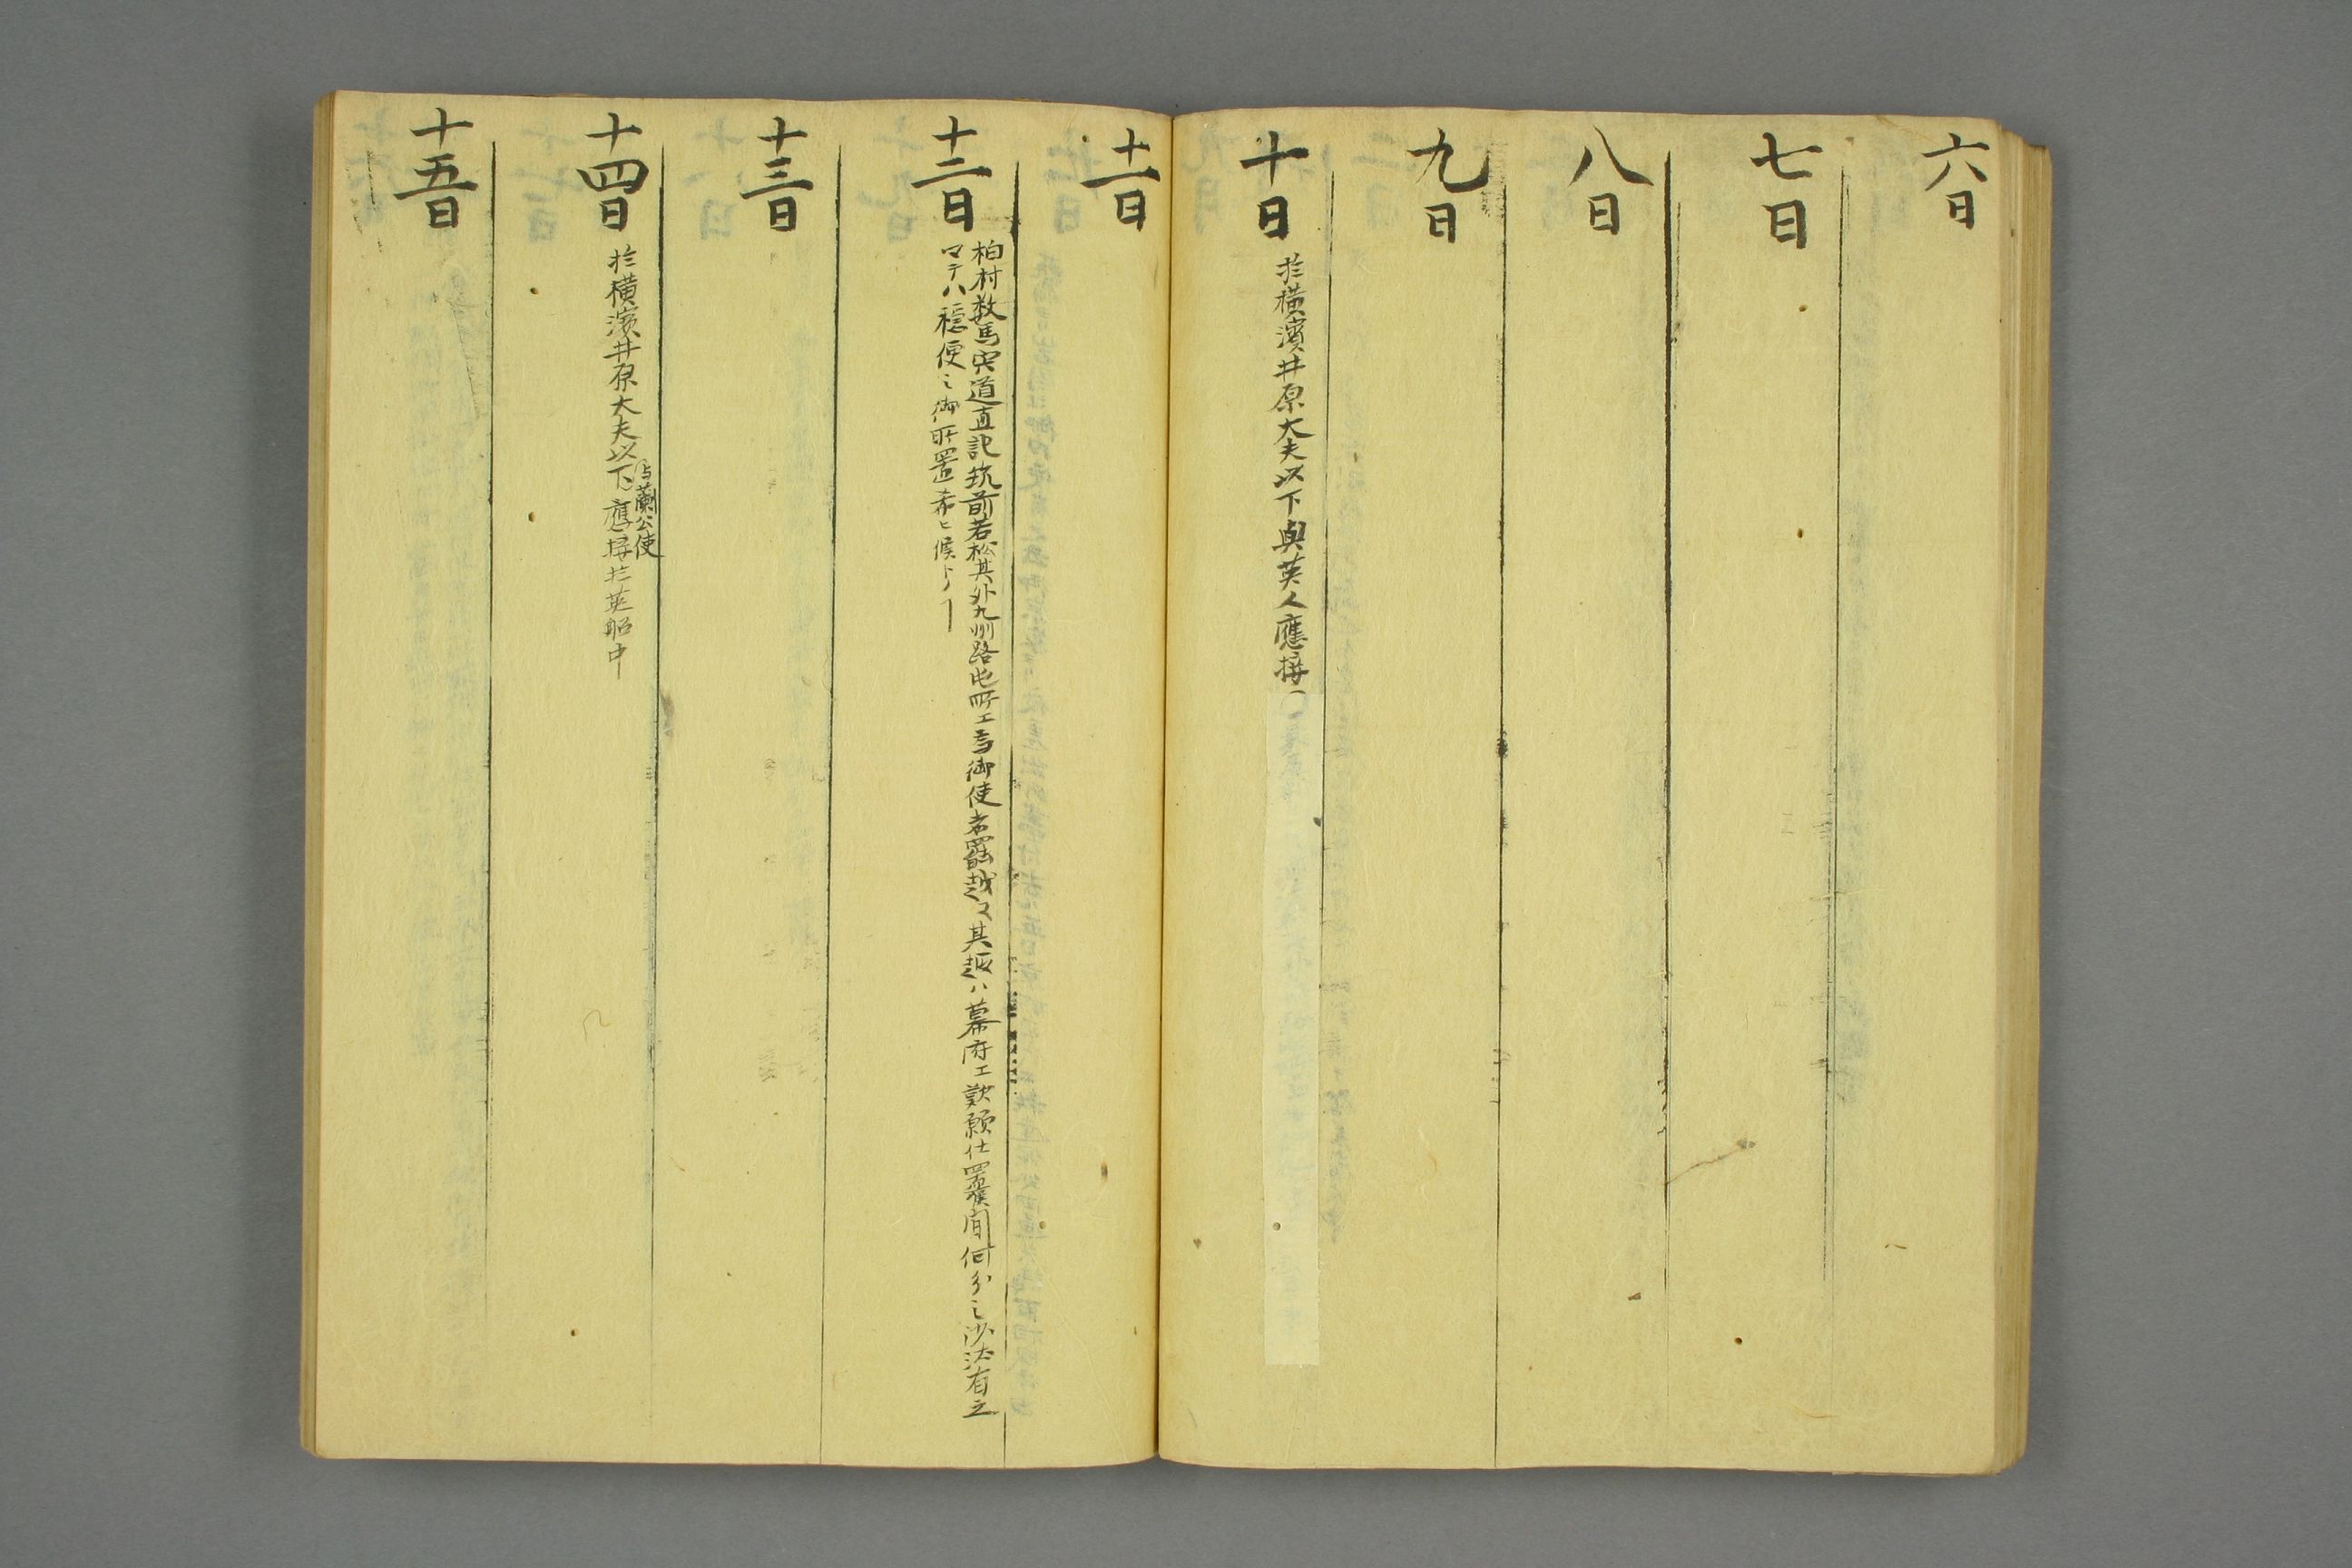 六日
七日
八日
九日
十日
於横濱井原大夫以下與英人應接
十一日
十二日
柏村数馬宍道直記筑前若松其外九州路屯所エ為御使者罷越ス其趣ハ幕府エ歎願仕置候間何分之沙汰有之
マテハ穏便之御所置希ヒ候トノ
十三日
十四日
於横濱井原大夫以下應接於英船中
与蘭公使
十五日